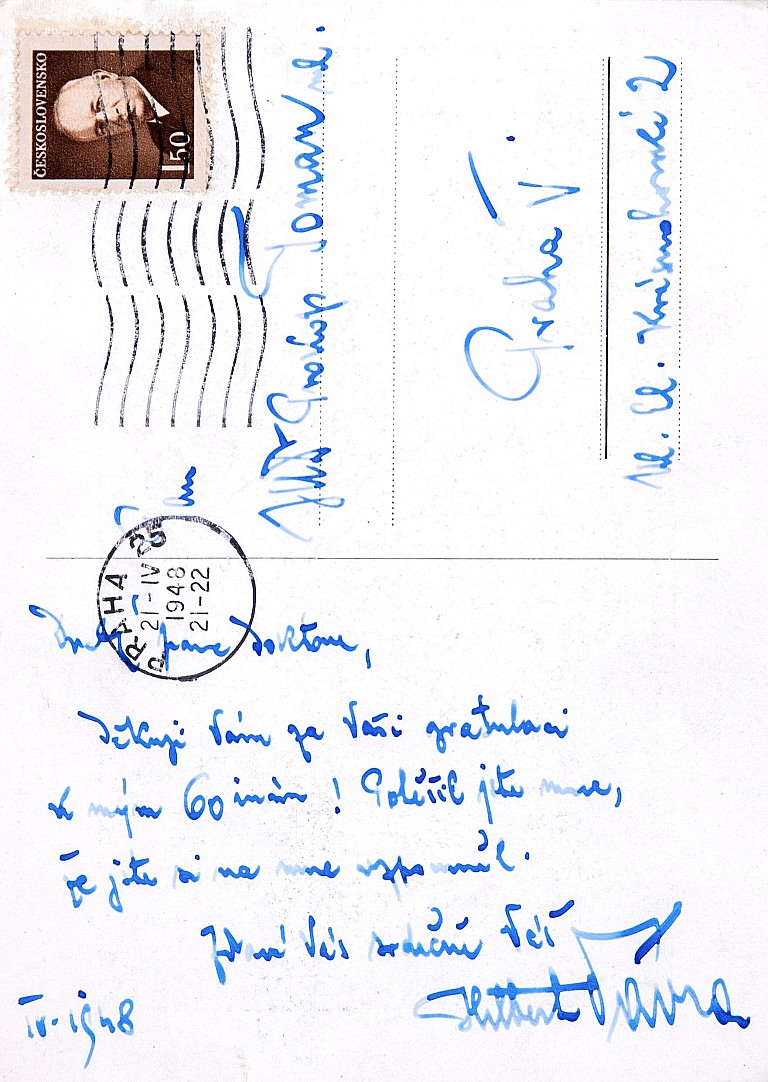 ČESKOSLOVENSKO
1.50
PRAHA 25
21-IV
1948
21-22
Pan
JUDr Prokop Toman ml.
Praha V.
El. Krásnohorské 2
Drahý pane Doktore,
Děkuji Vám za Vaši gratulaci
k mým 60 inám! Potěšil jste mne,
že jste si na mne vzpomněl.
Zdraví Vás srdečně Váš
Vávra
IV. 1948